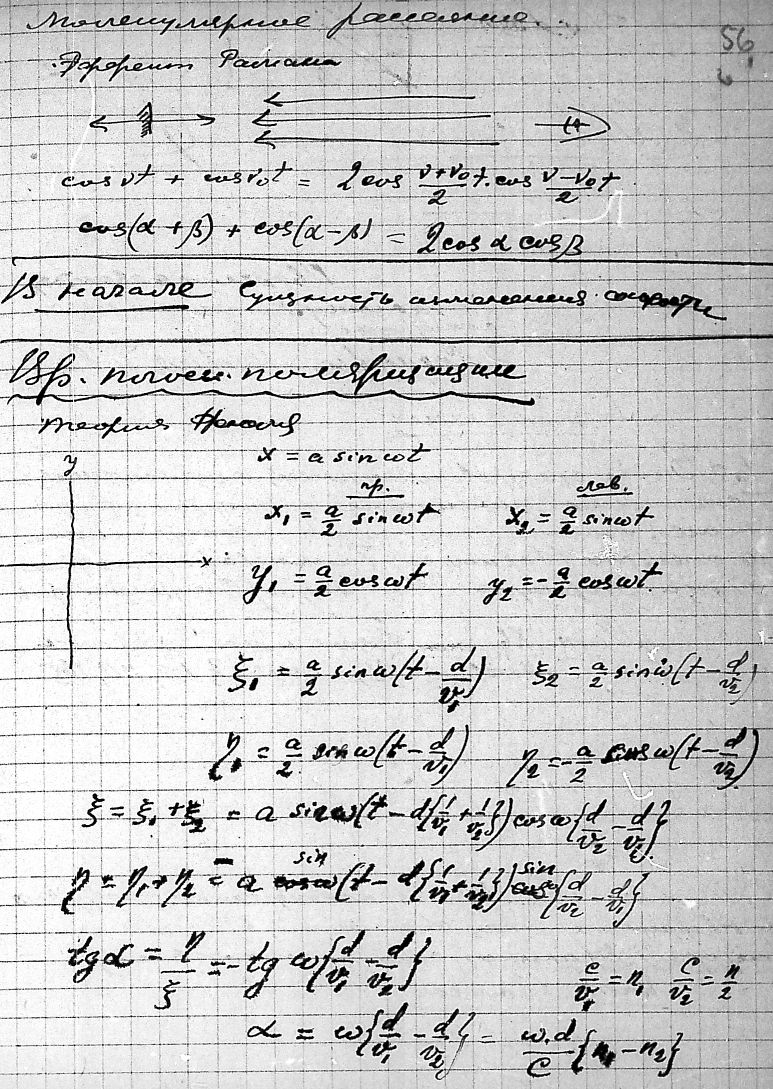 Молекулярное рассеяние.
56
Эффект Рамана
cos νt + cos ν₀t = 2cos (ν+ν₀)/2 t · cos (ν−ν₀)/2 t
cos(α + β) + cos(α − β) = 2cos α cos β
В начале Сущность изменения скорости
Вр. плоск. поляризации
Теория Френеля
y
x = a sin ωt
пр. лев.
x₁ = a/2 sin ωt x₂ = a/2 sin ωt
x
y₁ = a/2 cos ωt y₂ = − a/2 cos ωt
ξ₁ = a/2 sin ω(t − d/v₁) ξ₂ = a/2 sin ω(t − d/v₂)
η₁ = a/2 sin ω(t − d/v₁) η₂ = − a/2 cos ω(t − d/v₂)
ξ = ξ₁ + ξ₂ = a sin ω(t − d{1/v₁ + 1/v₂}) cos ω{d/v₂ − d/v₁}
η = η₁ + η₂ = − a sin (t − d{1/v₁ + 1/v₂}) sin {d/v₂ − d/v₁}
tg α = η/ξ = − tg ω{d/v₁ − d/v₂}
c/v₁ = n₁ c/v₂ = n/2
α = ω{d/v₁ − d/v₂} = ω.d/c {n₁ − n₂}